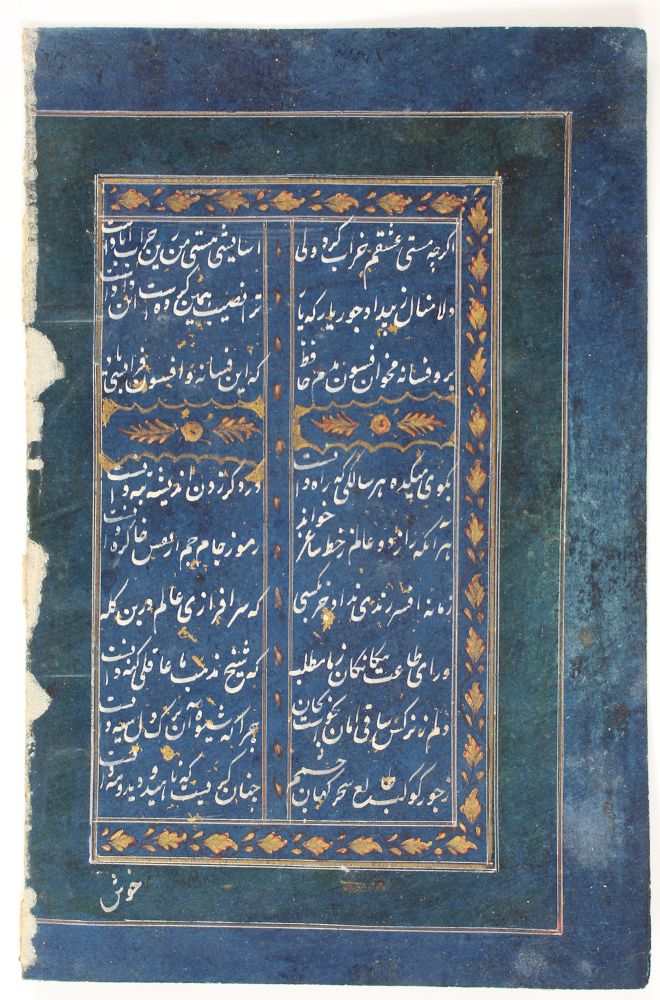 اگرچه مستی عشقم خراب کرد ولی اساس هستی من زین خراب آبادست
دلا منال ز بیداد جور یار که یار ترا نصیب همین کرده است این دادست
برو فسانه مخوان افسون مدم حافظ که این فسانه و افسون
بکوی میکده هر سالکی که راه دانست در دکر زدن اندیشه تبه دانست
هر آنکه راز دو عالم ز خط ساغر خواند رموز جام جم از نقش خاک ره دانست
زمانه افسر رندی نداد جز بکسی که سرافرازی عالم درین کله
ورای طاعت بیکانکان ز ما مطلب که شیخ مذهب ما عاقلی کنه دانست
دلم ز نرکس ساقی امان نخواست بجان چرا که شیوه آن ترک دل سیه دانست
ز جور کوکب طالع سحر کهان چشمم چنان کریست که ناهید و دید و مه دانست
خوش